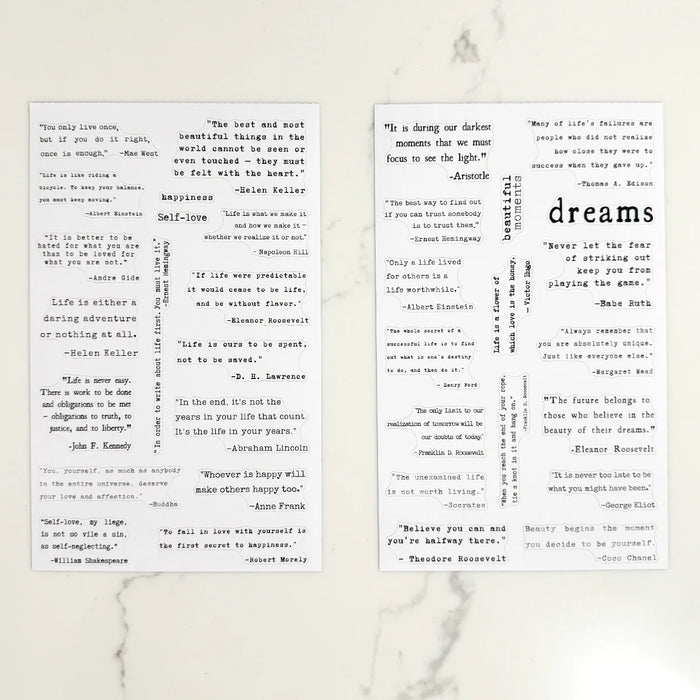 "You only live once,
but if you do it right,
once is enough." -Mae West
"Life is like riding a
bicycle. To keep your balance,
you must keep moving."
-Albert Einstein
"It is better to be
hated for what you are
than to be loved for
what you are not."
-Andre Gide
Life is either a
daring adventure
or nothing at all.
-Helen Keller
"Life is never easy.
There is work to be done
and obligations to be met
- obligations to truth, to
justice, and to liberty."
-John F. Kennedy
"You, yourself, as much as anybody
in the entire universe, deserve
your love and affection."
-Buddha
"Self-love, my liege,
is not so vile a sin,
as self-neglecting."
-William Shakespeare
"The best and most
beautiful things in the
world cannot be seen or
even touched — they must
be felt with the heart."
-Helen Keller
happiness
Self-love
"Life is what we make it
and how we make it -
whether we realize it or not."
- Napoleon Hill
"In order to write about life first, You must live it."
-Ernest Hemingway
"If life were predictable
it would cease to be life,
and be without flavor."
-Eleanor Roosevelt
"Life is ours to be spent,
not to be saved."
-D. H. Lawrence
"In the end, it's not the
years in your life that count.
It's the life in your years."
-Abraham Lincoln
"Whoever is happy will
make others happy too."
-Anne Frank
"To fall in love with yourself is
the first secret to happiness."
-Robert Morely
"It is during our darkest
moments that we must
focus to see the light."
-Aristotle
"The best way to find out
if you can trust somebody
is to trust them."
-Ernest Hemingway
"Only a life lived
for others is a
life worthwhile."
-Albert Einstein
"The whole secret of a
successful life is to find
out what is one's destiny
to do, and then do it."
- Henry Ford
"The only limit to our
realization of tomorrow will be
our doubts of today."
-Franklin D. Roosevelt
"The unexamined life
is not worth living."
-Socrates
"Believe you can and
you're halfway there."
- Theodore Roosevelt
beautiful
moments
Life is a flower of
which love is the honey.
- Victor Hugo
"When you reach the end of your rope,
tie a knot in it and hang on."
-Franklin D. Roosevelt
"Many of life's failures are
people who did not realize
how close they were to
success when they gave up."
-Thomas A. Edison
dreams
"Never let the fear
of striking out
keep you from
playing the game."
-Babe Ruth
"Always remember that
you are absolutely unique.
Just like everyone else."
-Margaret Mead
"The future belongs to
those who believe in the
beauty of their dreams."
-Eleanor Roosevelt
"It is never too late to be
what you might have been."
-George Eliot
Beauty begins the moment
you decide to be yourself.
-Coco Chanel